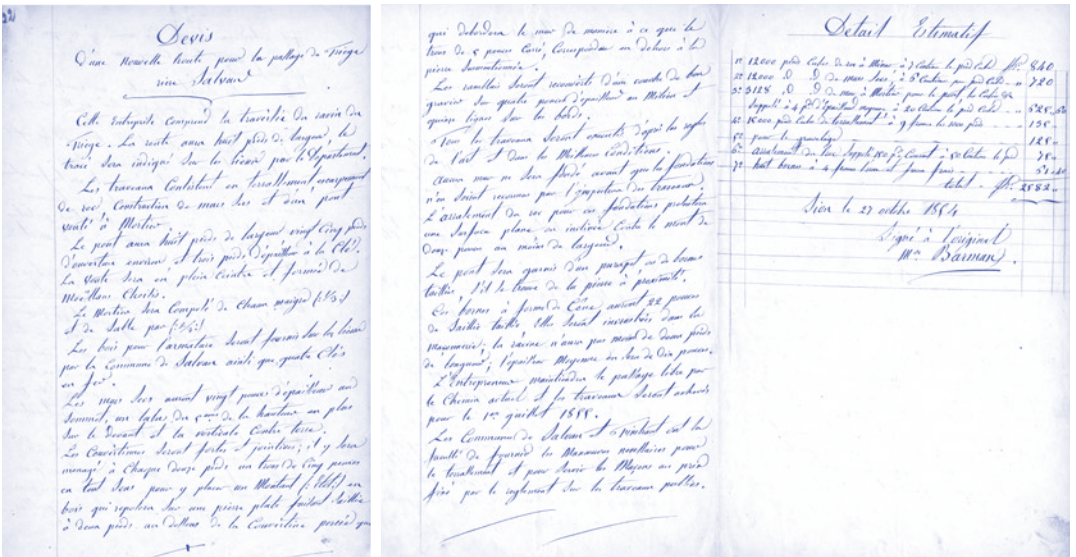 22
Devis
d'une Nouvelle Route pour le passage du Triège
rière Salvan
Cette Entreprise comprend la traversée du ravin du
Triège. La route aura huit pieds de largeur, le
tracé sera indiqué sur les lieux par le Département.
Les travaux Consistent en terrassement escarpement
de roc, Construction de murs secs et d'un pont
voûté à Mortier.
Le pont aura huit pieds de largeur vingt Cinq pieds
d'ouverture environ et trois pieds d'épaisseur à la Clé.
La voûte sera en plein Ceintre et formée de
Moëllons Choisis.
Le Mortier sera Composé de Chaux maigre (:⅓:)
et de Sable pur (:⅔:)
Les bois pour l'armature seront fournis sur les lieux
par la Commune de Salvan ainsi que quatre Clés
en fer.
Les murs secs auront vingt pouces d'épaisseur au
Sommet, un talus du 5me de la hauteur au plus
sur le devant et la verticale Contre terre.
Les Couvertines seront fortes et jointives; il y sera
ménagé à Chaque douze pieds un trou de Cinq pouces
en tout sens pour y placer un Montant en
bois qui reposera sur une pierre plate faisant saillie
à deux pieds au dessous de la Couvertine percée
qui débordera le mur de manière à ce que le
trou de 5 pouces Carré, Corresponde en dehors à la
pierre Surmentionnée.
Les remblais seront recouverts d'une couche de bon
gravier sur quatre pouces d'épaisseur au Milieu et
quinze lignes sur les bords.
Tous les travaux seront exécutés d'après les règles
de l'art et dans les Meilleures Conditions.
Aucun mur ne sera fondé avant que les fondations
n'en soient reconnues par l'inspecteur des travaux.
L'arrasement du roc pour ces fondations présentera
une surface plane ou inclinée Contre le mont de
douze pouces au moins de largeur.
Le pont sera garni d'un parapet ou de bornes
taillées, s'il se trouve de la pierre à proximité.
Ces bornes à forme de Cône auront 22 pouces
de Saillie taillée. Elles seront incrustées dans la
maçonnerie; la racine n'aura pas moins de deux pieds
de longueur; l'épaisseur Moyenne en sera de dix pouces.
L'Entrepreneur maintiendra le passage libre par
le Chemin actuel et les travaux seront achevés
pour le 1er juillet 1855.
Les Communes de Salvan et Finhaut ont la
faculté de fournir les Manœuvres nécessaires pour
le terrassement et pour servir les Maçons au prix
fixé par le règlement sur les travaux publics.
Détail Estimatif
1° 12000 pied Cubes de roc à Miner à 7 Centimes le pied Cube fr. 840
2° 12000 d° d° de mur Sec à 6 Centimes par pied Cube " 720
3° 3128 d° d° de mur à Mortier pour le pont, les Culées
Supposé à 4 pds d'épaisseur moyenne à 20 Centimes le pied Cube 625,60
4° 15000 pied Cubes de terrassement à 9 francs les 1000 pied 135
5° pour le gravelage 125
6° arrasement du Roc Supposé 150 pds Courant à 50 Centimes le pd 75
7° huit bornes à 4 francs l'une
total fr. 2582
Sion le 27 octobre 1854
Signé à l'original
Mce Barman